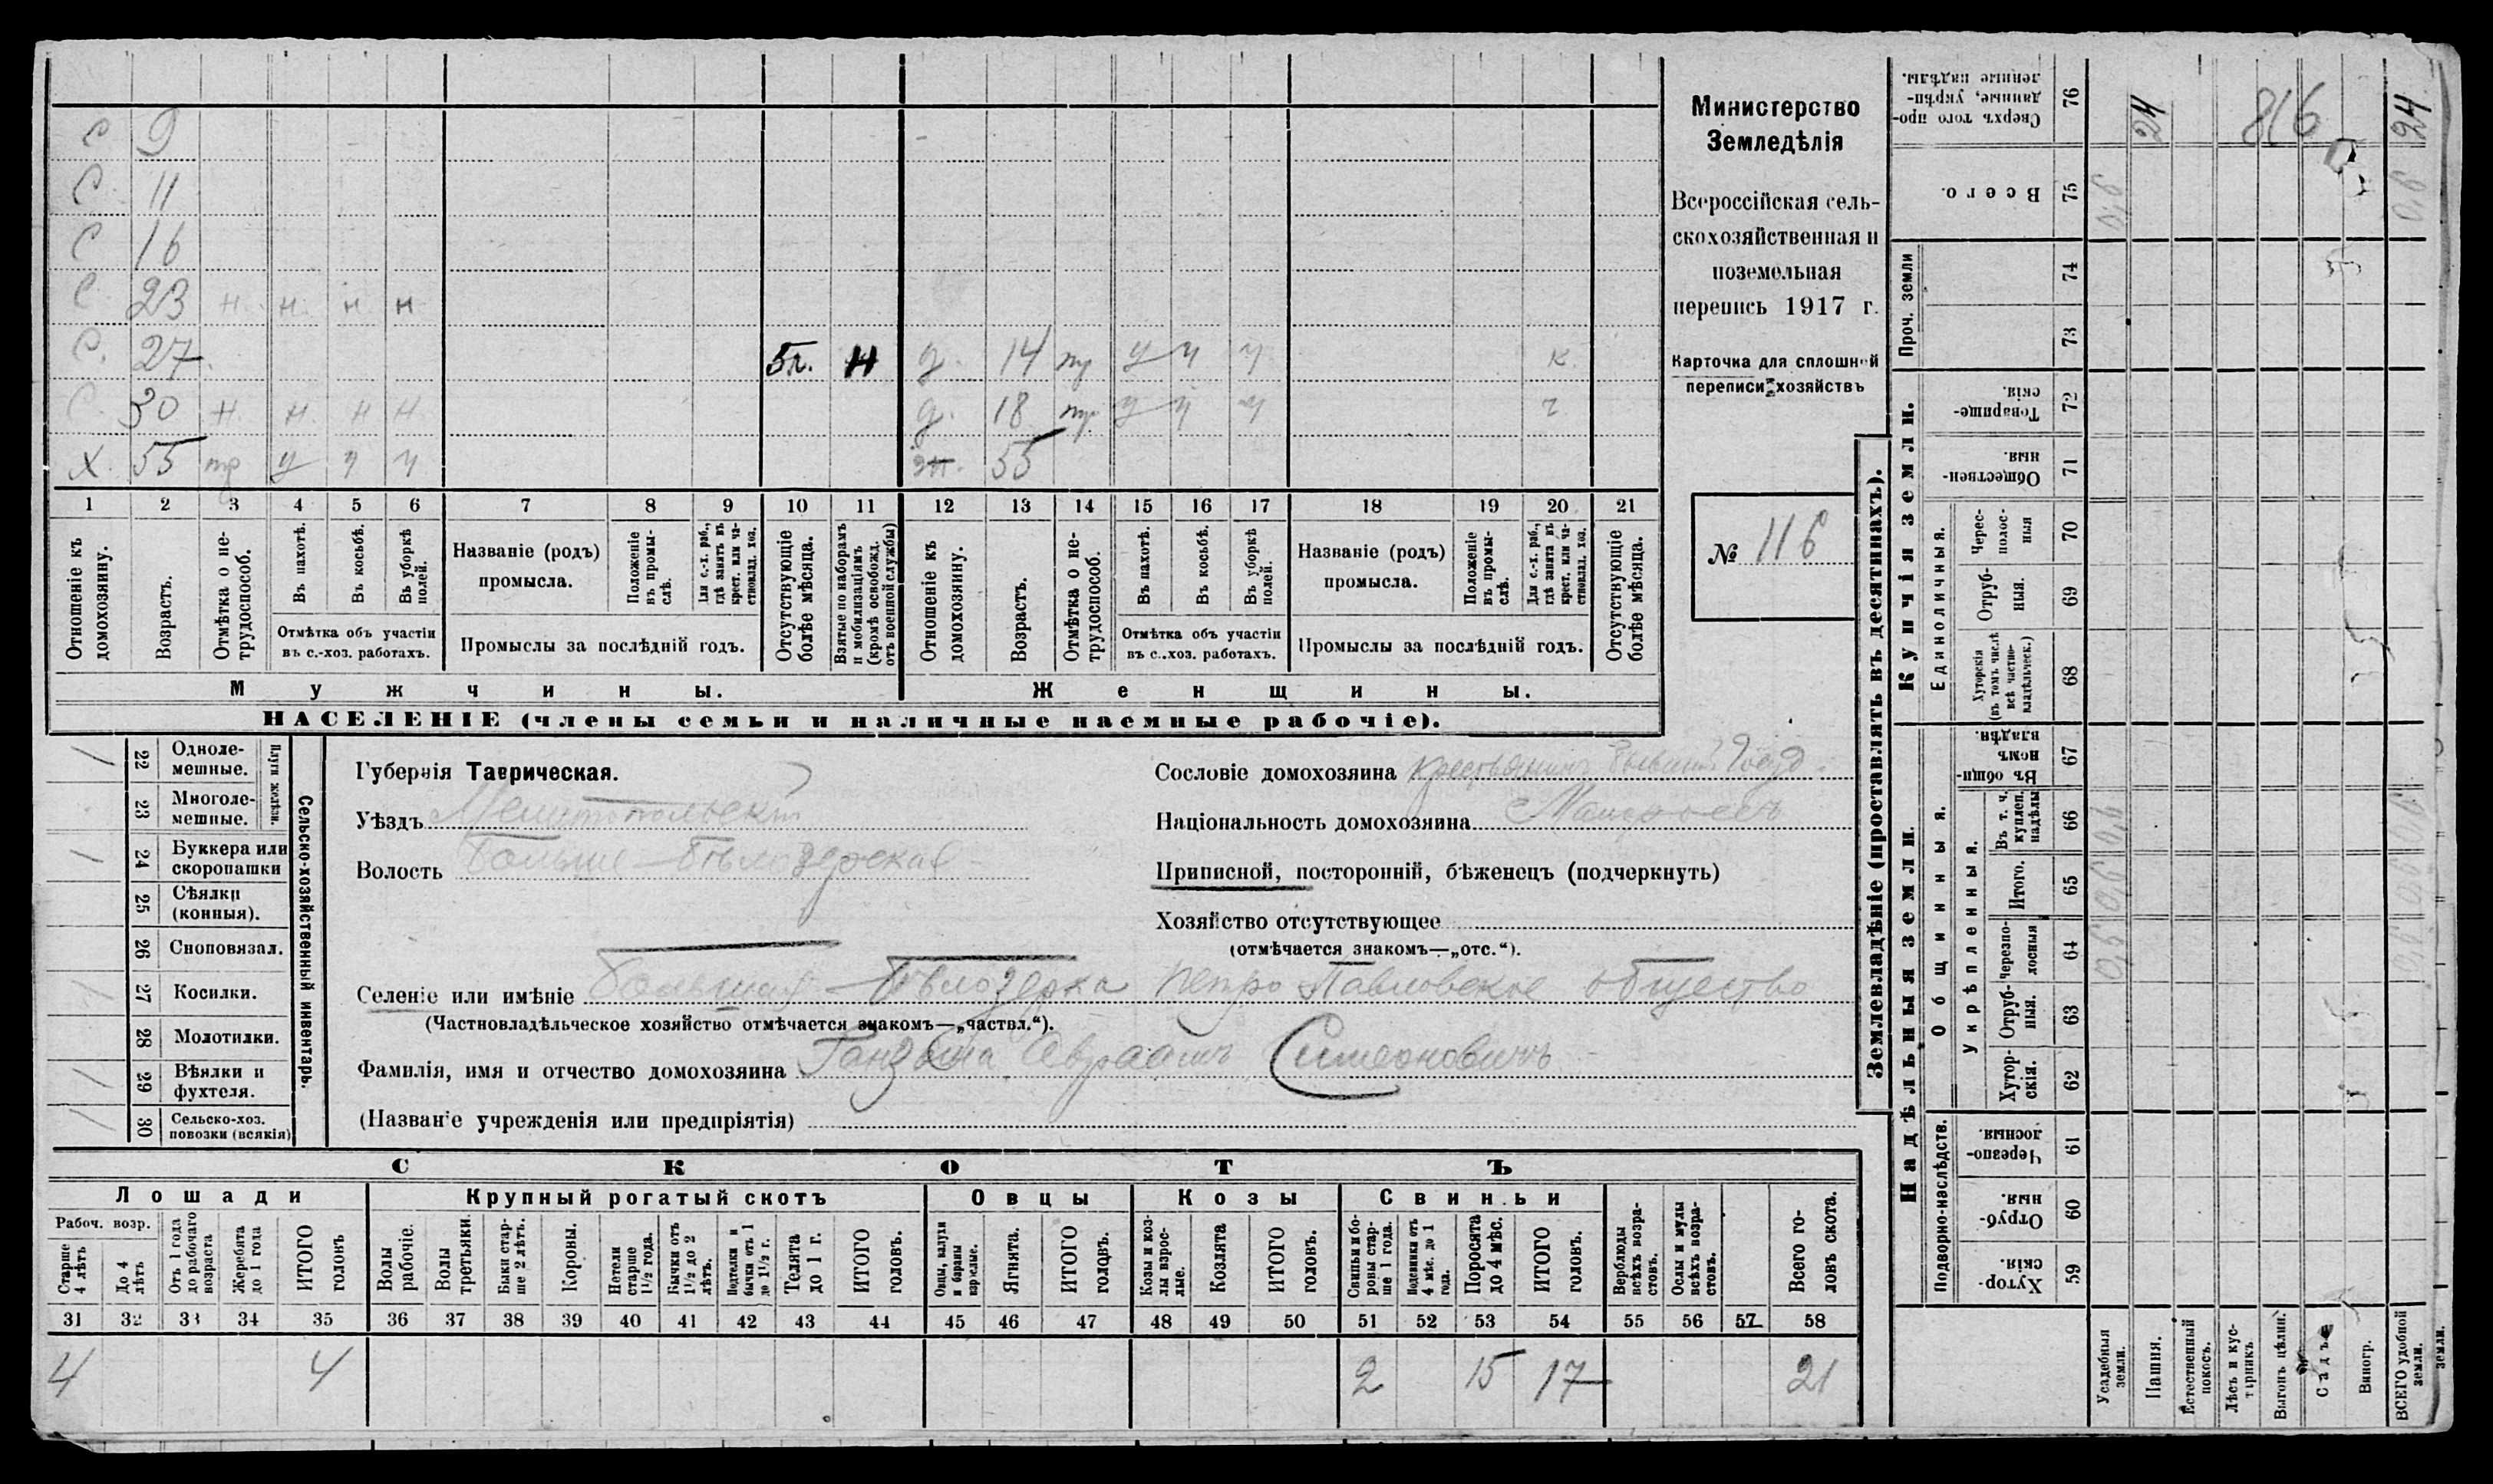 С 9
С. 11
С 16
С. 23 н. н. н н
С. 27. 5л. н д. 14 пр у ч ч к.
С. 30 н. н н н д. 18 пр. у ч ч г
Х. 55 пр у ч ч жн. 55
1 2 3 4 5 6 7 8 9 10 11 12 13 14 15 16 17 18 19 20 21
Отношеніе къ домохозяину.
Возрастъ.
Отмѣтка о нетрудоспособ.
Въ пахотѣ.
Въ косьбѣ.
Въ уборкѣ полей.
Отмѣтка объ участіи въ с.-хоз. работахъ.
Названіе (родъ) промысла.
Положеніе въ промыслѣ.
Для с.-х. раб., гдѣ занятъ въ крест. или частновлад. хоз.
Промыслы за послѣдній годъ.
Отсутствующіе болѣе мѣсяца.
Взятые по наборамъ и мобилизаціямъ (кромѣ освобожд. отъ военной службы)
Отношеніе къ домохозяину.
Возрастъ.
Отмѣтка о нетрудоспособ.
Въ пахотѣ.
Въ косьбѣ.
Въ уборкѣ полей.
Отмѣтка объ участіи въ с.-хоз. работахъ.
Названіе (родъ) промысла.
Положеніе въ промыслѣ.
Для с.-х. раб., гдѣ занята въ крест. или частновлад. хоз.
Промыслы за послѣдній годъ.
Отсутствующіе болѣе мѣсяца.
Мужчины. Женщины.
НАСЕЛЕНІЕ (члены семьи и наличные наемные рабочіе).
Министерство
Земледѣлія
Всероссійская сель-
скохозяйственная и
поземельная
перепись 1917 г.
Карточка для сплошной
переписи хозяйствъ
№ 116
Сельско-хозяйственный инвентарь.
Плуги желѣзн.
22 Одноле-мешные. 1
23 Многоле-мешные.
24 Буккера или скоропашки 1
25 Сѣялки (конныя).
26 Сноповязал.
27 Косилки. 1
28 Молотилки.
29 Вѣялки и фухтеля. 1
30 Сельско-хоз. повозки (всякія) 1
Губернія Таврическая.
Уѣздъ Мелитопольскій
Волость Больше-Бѣлозерская
Сословіе домохозяина Крестьянинъ бывший Госуд.
Національность домохозяина Малороссъ
Приписной, посторонній, бѣженецъ (подчеркнуть)
Хозяйство отсутствующее
(отмѣчается знакомъ—„отс.“).
Селеніе или имѣніе Большая Бѣлозерка Петро Павловское общество
(Частновладѣльческое хозяйство отмѣчается знакомъ—„частвл.“).
Фамилія, имя и отчество домохозяина Авраамъ Симеоновичъ
(Названіе учрежденія или предпріятія)
СКОТЪ
Лошади Крупный рогатый скотъ Овцы Козы Свиньи
Рабоч. возр.
Старше 4 лѣтъ
До 4 лѣтъ
Отъ 1 года до рабочаго возраста
Жеребята до 1 года
ИТОГО головъ
Волы рабочіе.
Волы третьяки.
Быки старше 2 лѣтъ.
Коровы.
Нетели старше 1 1/2 года.
Бычки отъ 1 1/2 до 2 лѣтъ.
Подтелки и бычки отъ 1 до 1 1/2 г.
Телята до 1 г.
ИТОГО головъ.
Овцы, валухи и бараны взрослые.
Ягнята.
ИТОГО головъ.
Козы и козлы взрослые.
Козлята
ИТОГО головъ.
Свиньи и боровы старше 1 года.
Подсвинки отъ 4 мѣс. до 1 года.
Поросята до 4 мѣс.
ИТОГО головъ.
Верблюды всѣхъ возрастовъ.
Ослы и мулы всѣхъ возрастовъ.
Всего головъ скота.
31 32 33 34 35 36 37 38 39 40 41 42 43 44 45 46 47 48 49 50 51 52 53 54 55 56 57 58
4 4 2 15 17 21
Землевладѣніе (проставлять въ десятинахъ).
Купчія земли.
Надѣльныя земли.
Сверхъ того проданные, укрѣпленные надѣлы. 76 24 816 24
Всего. 75 0,6 0,6
Проч. земли 74
73
Товарищескія 72
Общественныя. 71
Единоличныя.
Чересполосныя 70
Отрубныя. 69
Хуторскія (въ томъ числѣ всѣ частновладѣльческ.) 68
Общинныя.
Въ общиномъ владѣн. 67
Укрѣпленныя.
Въ т. ч. куплен. надѣлы 66 0,6
Итого. 65 0,6
Черезполосныя 64 0,6
Отрубныя. 63
Хуторскія. 62
Подворно-наслѣдств.
Черезполосныя. 61
Отрубныя. 60
Хуторскія. 59
Усадебныя земли.
Пашня.
Естественный покосъ.
Лѣсъ и кустарникъ.
Выгонъ цѣлин.
Садъ
Виногр.
ВСЕГО удобной земли.
земли.